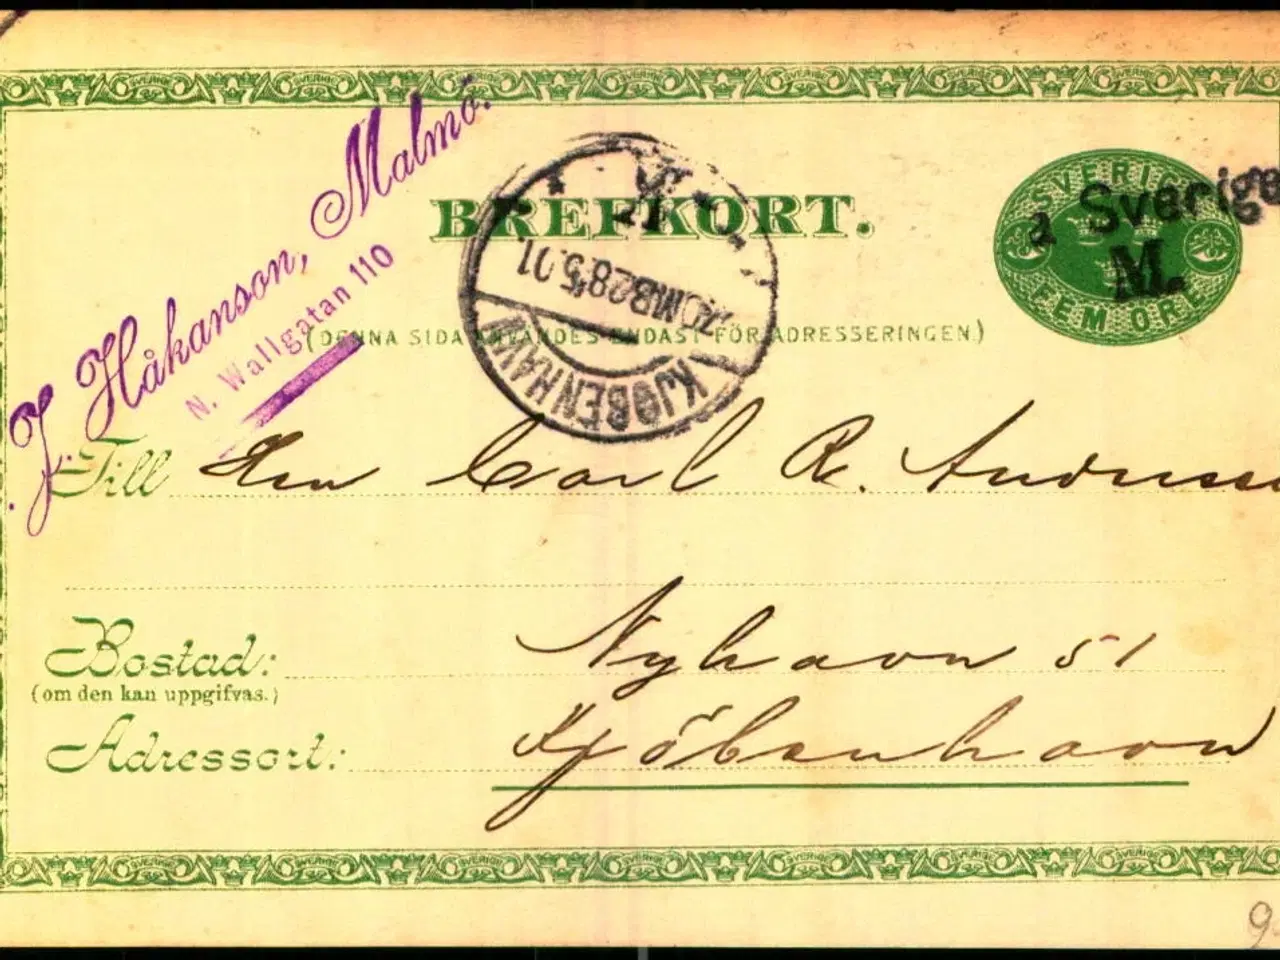 J. Håkanson, Malmö.
N. Wallgatan 110
BREFKORT.
SVERIGE
FEM ÖRE
a Sverige
M.
KJØBENHAVN
28.5.01.
(DENNA SIDA ANVÄNDES ENDAST FÖR ADRESSERINGEN.)
Till Herr Carl R. Anderss
Bostad: Nyhavn 51
(om den kan uppgifvas.)
Adressort: Kjöbenhavn
9